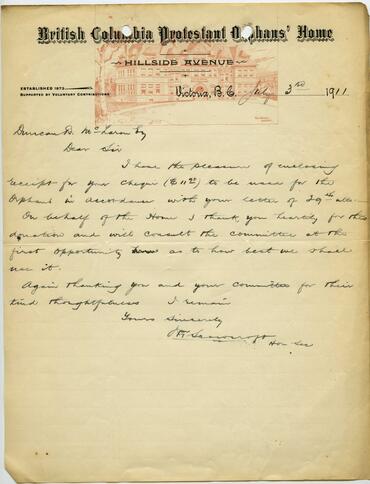 British Columbia Protestant Orphans' Home
HILLSIDE AVENUE
ESTABLISHED 1873
SUPPORTED BY VOLUNTARY CONTRIBUTIONS
Victoria, B.C. July 3rd 1911
Duncan D. McLaren Esq
Dear Sir
I have the pleasure of enclosing
receipt for your cheque to be used for the
Orphans in accordance with your letter of 29th ulto.
On behalf of the Home I thank you heartily for this
donation and will consult the committee at the
first opportunity as to how best we shall
use it.
Again thanking you and your committee for their
kind thoughtfulness I remain
Yours sincerely
Hon Sec